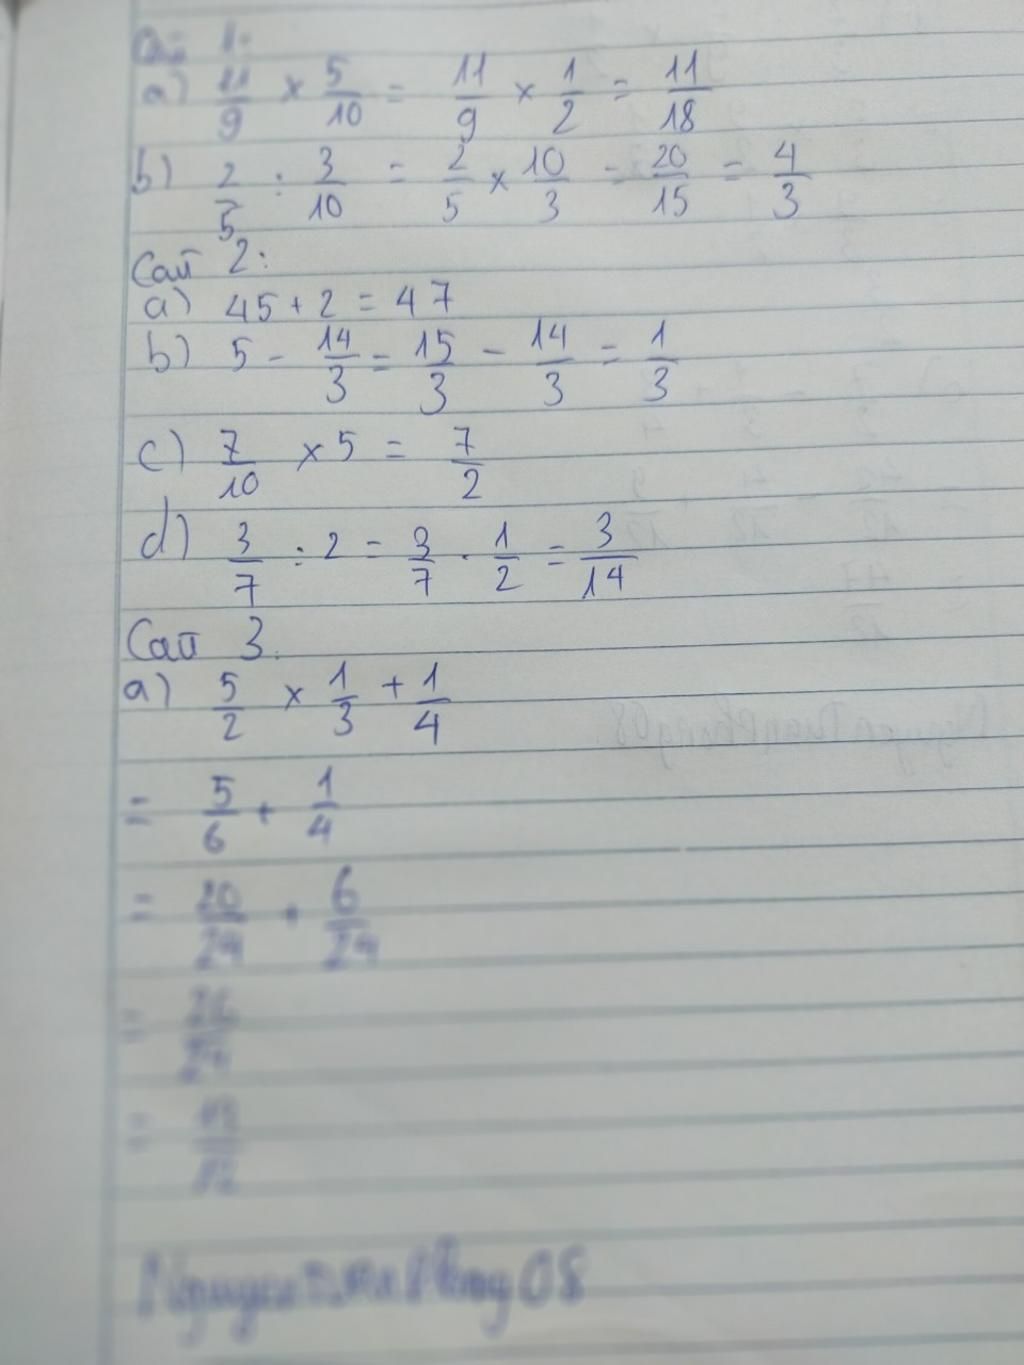 Câu 1:
a) 11/9 × 5/10 = 11/9 × 1/2 = 11/18
b) 2/5 : 3/10 = 2/5 × 10/3 = 20/15 = 4/3
Câu 2:
a) 45 + 2 = 47
b) 5 - 14/3 = 15/3 - 14/3 = 1/3
c) 7/10 × 5 = 7/2
d) 3/7 : 2 = 3/7 . 1/2 = 3/14
Câu 3.
a) 5/2 × 1/3 + 1/4
= 5/6 + 1/4
= 20/24 + 6/24
= 26/24
= 13/12